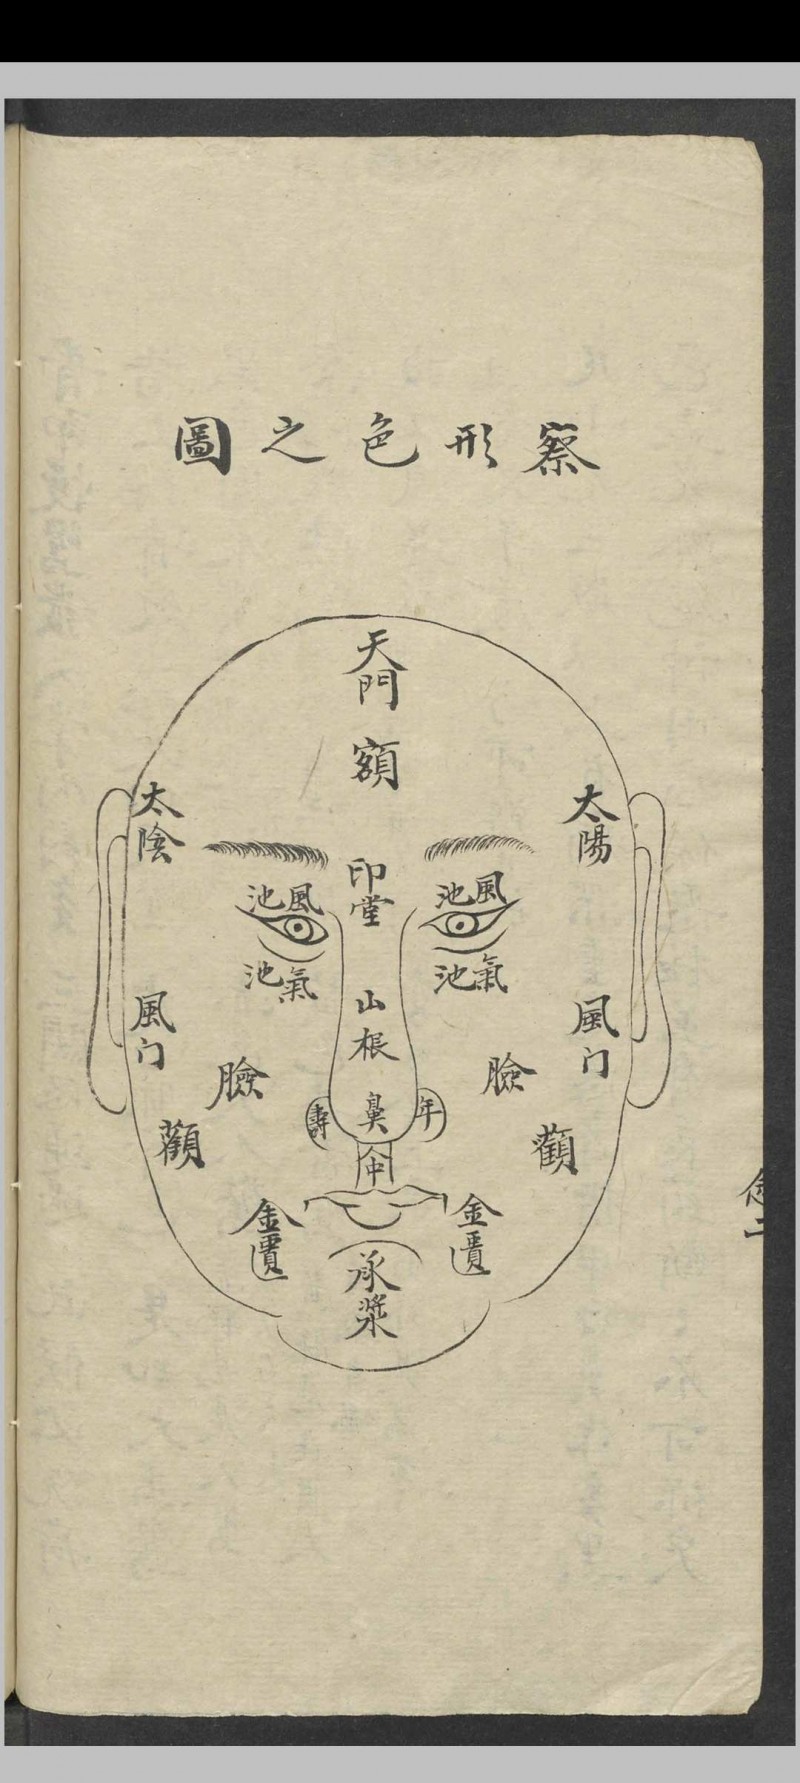 察形色之圖
天門
額
太陽
太陰
印堂
風池
風池
氣池
氣池
山根
風门
風门
臉
臉
鼻
年
壽
顴
顴
人中
金匱
金匱
承漿